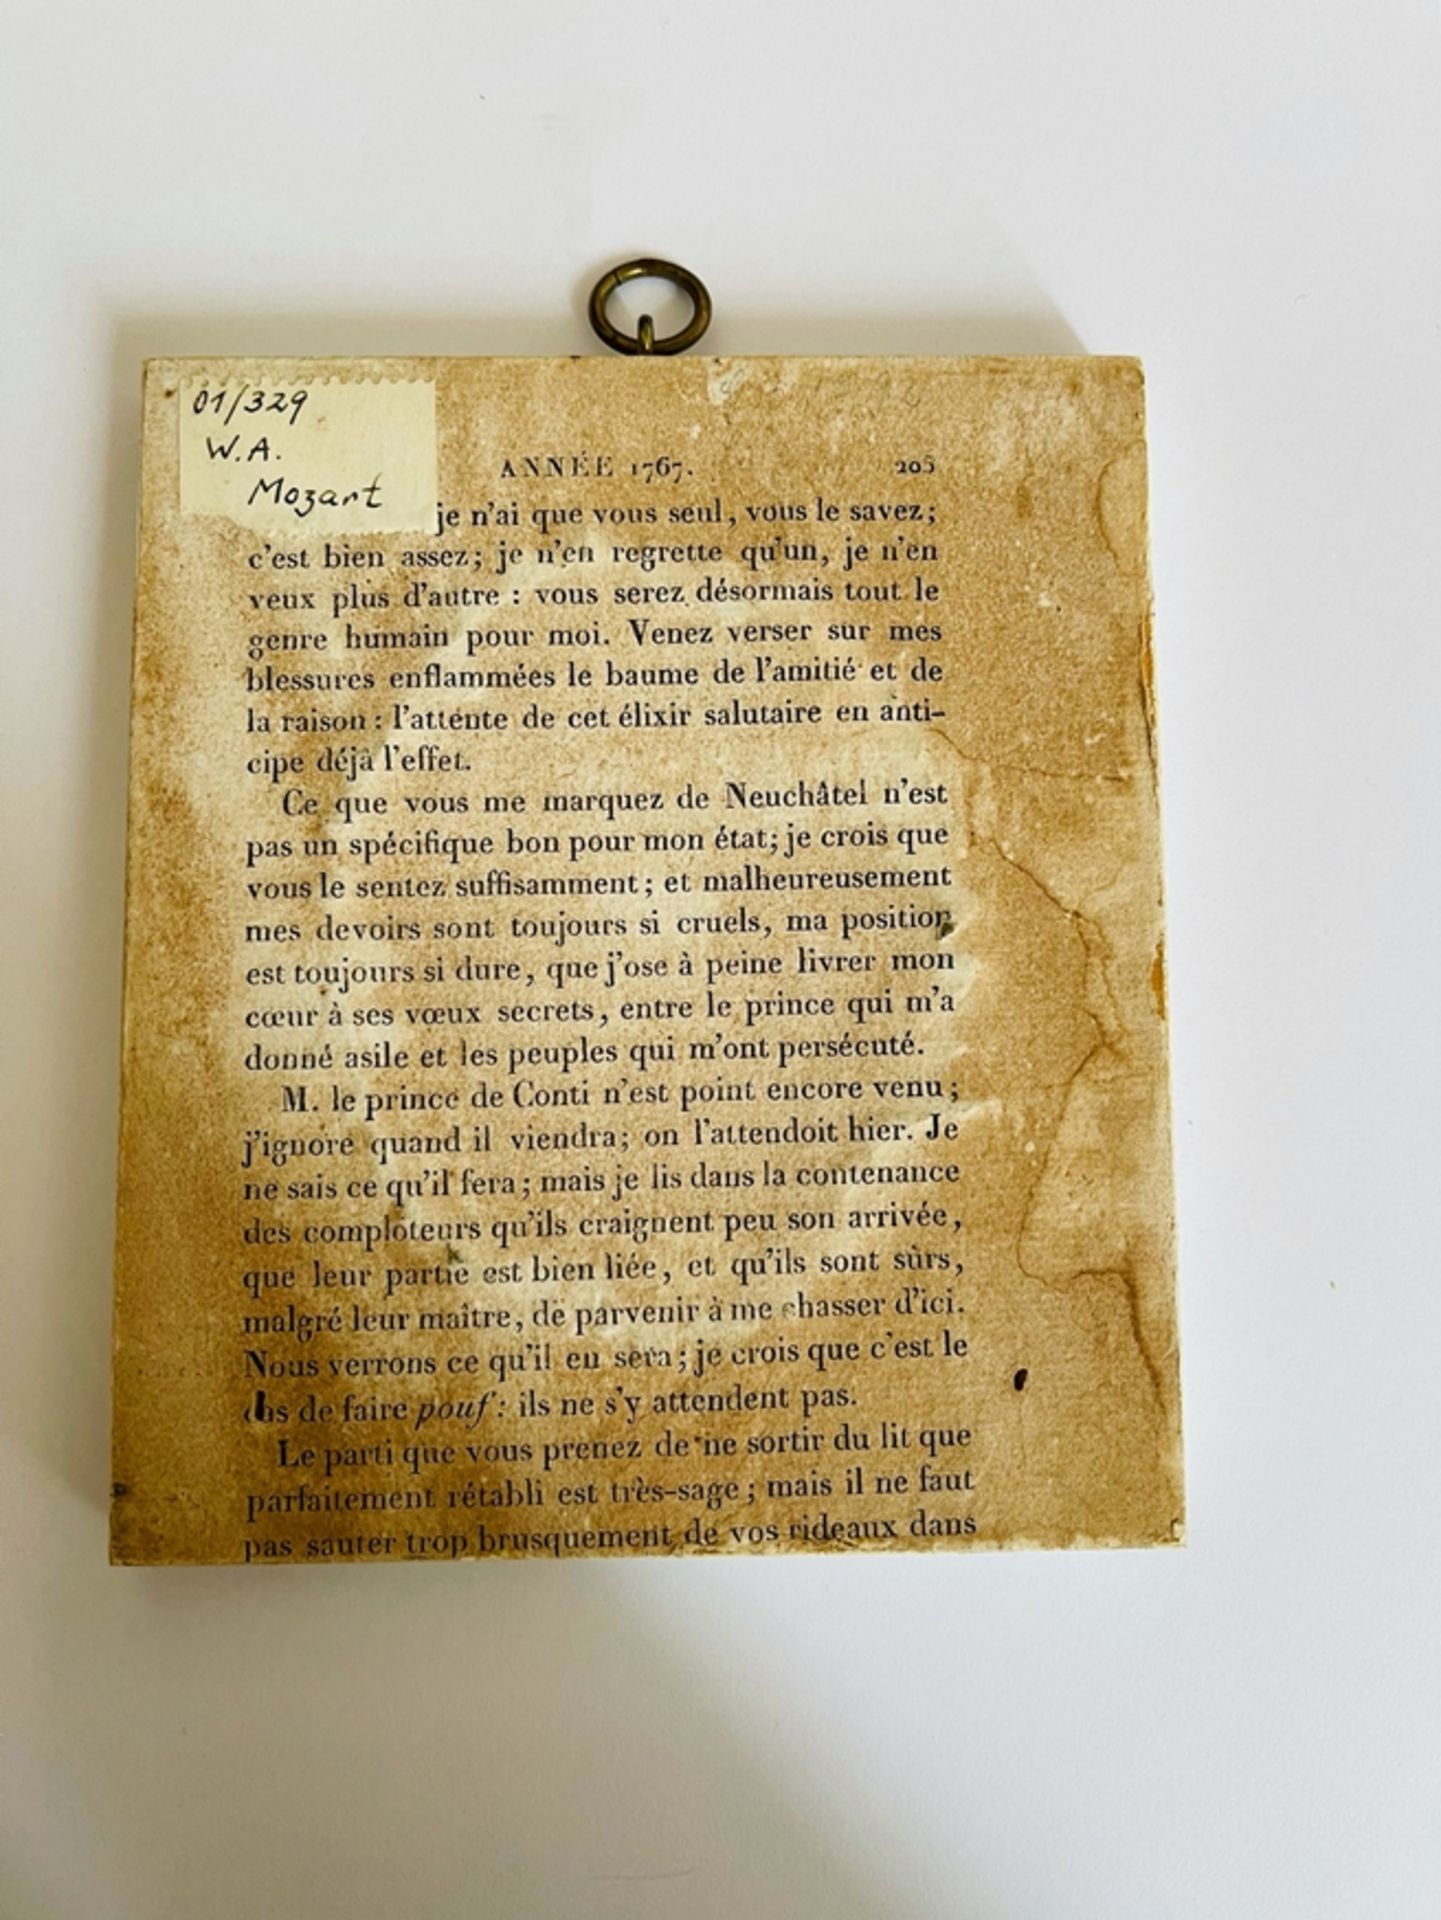 01/329
W.A.
Mozart
ANNÉE 1767. 205
je n'ai que vous seul, vous le savez;
c'est bien assez; je n'en regrette qu'un, je n'en
veux plus d'autre : vous serez désormais tout le
genre humain pour moi. Venez verser sur mes
blessures enflammées le baume de l'amitié et de
la raison : l'attente de cet élixir salutaire en anti-
cipe déjà l'effet.
Ce que vous me marquez de Neuchâtel n'est
pas un spécifique bon pour mon état; je crois que
vous le sentez suffisamment; et malheureusement
mes devoirs sont toujours si cruels, ma position
est toujours si dure, que j'ose à peine livrer mon
cœur à ses vœux secrets, entre le prince qui m'a
donné asile et les peuples qui m'ont persécuté.
M. le prince de Conti n'est point encore venu;
j'ignore quand il viendra; on l'attendoit hier. Je
ne sais ce qu'il fera; mais je lis dans la contenance
des comploteurs qu'ils craignent peu son arrivée,
que leur partie est bien liée, et qu'ils sont sûrs,
malgré leur maître, de parvenir à me chasser d'ici.
Nous verrons ce qu'il en sera; je crois que c'est le
cas de faire pouf : ils ne s'y attendent pas.
Le parti que vous prenez de ne sortir du lit que
parfaitement rétabli est très-sage; mais il ne faut
pas sauter trop brusquement de vos rideaux dans